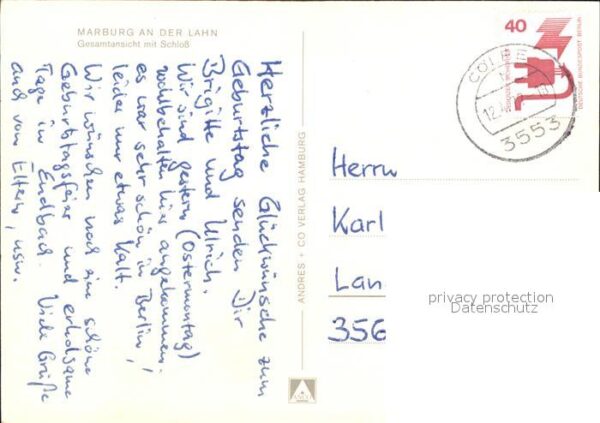 MARBURG AN DER LAHN
Gesamtansicht mit Schloß
Herzliche Glückwünsche zum
Geburtstag senden Dir
Brigitte und Ulrich.
Wir sind gestern (Ostermontag)
wohlbehalten hier angekommen.
es war sehr schön in Berlin,
leider nur etwas kalt.
Wir wünschen noch eine schöne
Geburtstagsfeier und erholsame
Tage in Endbach. Viele Grüße
auch von Eltern, usw.
ANDRES + CO VERLAG HAMBURG
ANCO
40
DEUTSCHE BUNDESPOST BERLIN
CÖLBE
12.
3553
Herrn
Karl
Lan
356
privacy protection
Datenschutz